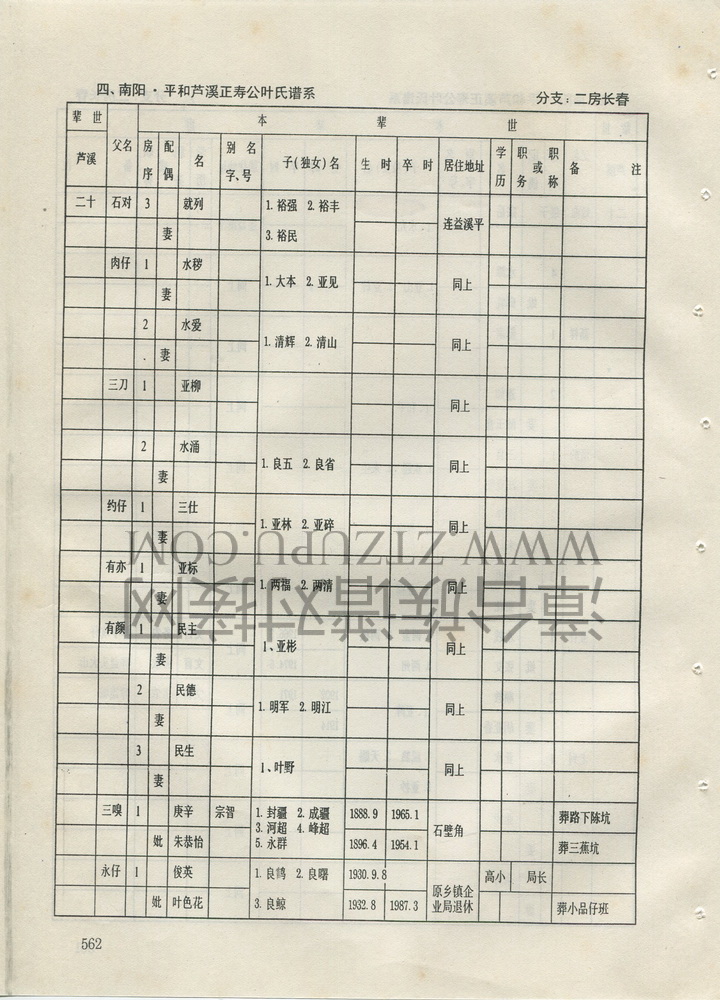 四、南阳·平和芦溪正寿公叶氏谱系 分支：二房长春
辈世 本 辈 世
芦溪 父名 房序 配偶 名 别名字、号 子(独女)名 生时 卒时 居住地址 学历 职务 或 职称 备注
二十 石对 3 就列 1.裕强 2.裕丰 连益溪平
妻 3.裕民
肉仔 1 水秽 1.大本 2.亚见 同上
妻
2 水爱 1.清辉 2.清山 同上
妻
三刀 1 亚柳 同上
2 水涌 1.良五 2.良省 同上
妻
约仔 1 三仕 1.亚林 2.亚碎 同上
妻
有亦 1 亚标 1.两福 2.两清 同上
妻
有颜 1 民主 1、亚彬 同上
妻
2 民德 1.明军 2.明江 同上
妻
3 民生 1、叶野 同上
妻
三嗅 1 庚辛 宗智 1.封疆 2.成疆 1888.9 1965.1 石壁角 葬路下陈坑
3.河超 4.峰超
妣 朱恭怡 5.永群 1896.4 1954.1 葬三蕉坑
永仔 1 俊英 1.良鹤 2.良曙 1930.9.8 原乡镇企业局退休 高小 局长
妣 叶色花 3.良鲸 1932.8 1987.3 葬小品仔班
562
漳台族谱对接网
WWW.ZTZUPU.COM